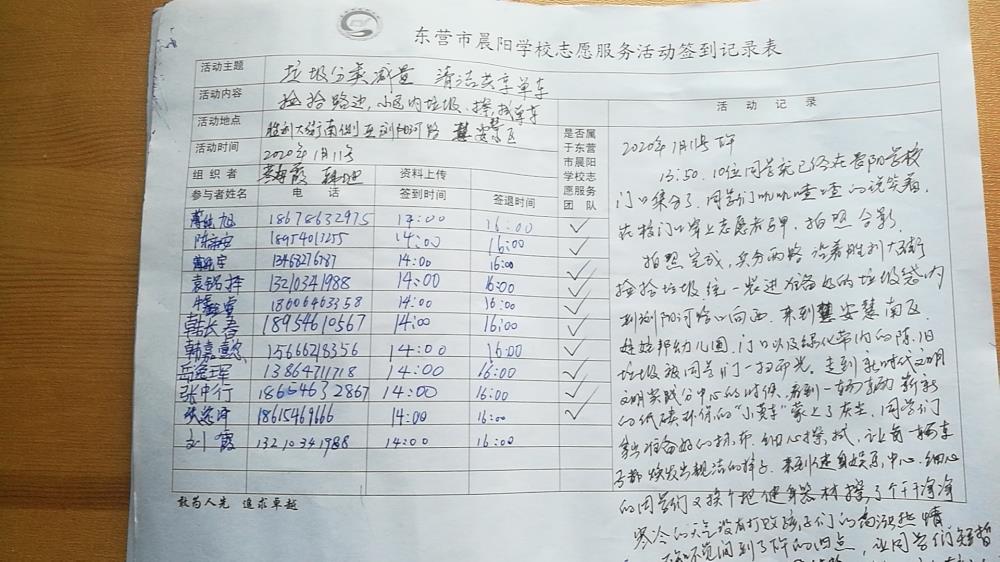 东营市晨阳学校志愿服务活动签到记录表
活动主题 垃圾分类减量 清洁共享单车
活动内容 捡拾路边,小区内垃圾、擦拭单车
活动地点 胜利大街南侧至浏阳河路 慧安慧区
活动时间 2020年1月11号
组织者 资料上传
是否属于东营市晨阳学校志愿服务团队
参与者姓名 电话 签到时间 签退时间
旭 18678632975 14:00 16:00 ✓
陈 18954013255 14:00 16:00 ✓
宇 13468276787 14:00 16:00 ✓
袁铭择 13210341988 14:00 16:00 ✓
睿 18606463358 14:00 16:00 ✓
韩长春 18954610667 14:00 16:00 ✓
韩嘉懿 15666218356 14:00 16:00 ✓
岳 珲 13864711718 14:00 16:00 ✓
张中行 18654632867 14:00 16:00 ✓
18615469666 14:00 16:00 ✓
刘霞 13210341988 14:00 16:00
敢为人先 追求卓越
活动记录
2020年1月11号下午
13:50,10位同学就已经在晨阳学校
门口集合了,同学们叽叽喳喳的说笑着,
在校门口穿上志愿者马甲,拍照合影。
拍照完成,兵分两路沿着胜利大街
捡拾垃圾,统一装进准备好的垃圾袋内
到浏阳河路口向西,来到慧安慧南区
娃娃邦幼儿园,门口以及绿化带内的陈旧
垃圾被同学们一扫而光。走到新时代文明
文明实践分中心的时候,看到一辆辆崭新
的低碳环保的“小黄车”蒙上了灰尘,同学们
拿出准备好的抹布,细心擦拭,让每一辆车
子都焕发出靓洁的样子。来到健身娱乐中心,细心
的同学们又挨个把健身器材擦了个干干净净
寒冷的天气没有打败孩子们的高涨热情
不知不觉间到了下午的四点,让同学们